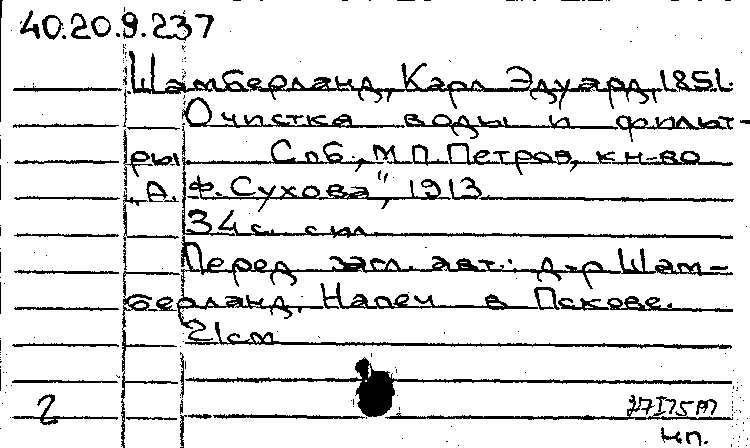 40.20.9.237
Шамберланд, Карл Эдуард, 1851.
Очистка воды и фильт-
ры. Спб., М.П. Петров, кн-во
„А.Ф. Сухова", 1913.
34 с. с ил.
Перед загл. авт.: д-р Шам-
берланд. Напеч в Пскове.
21см
2
нп.